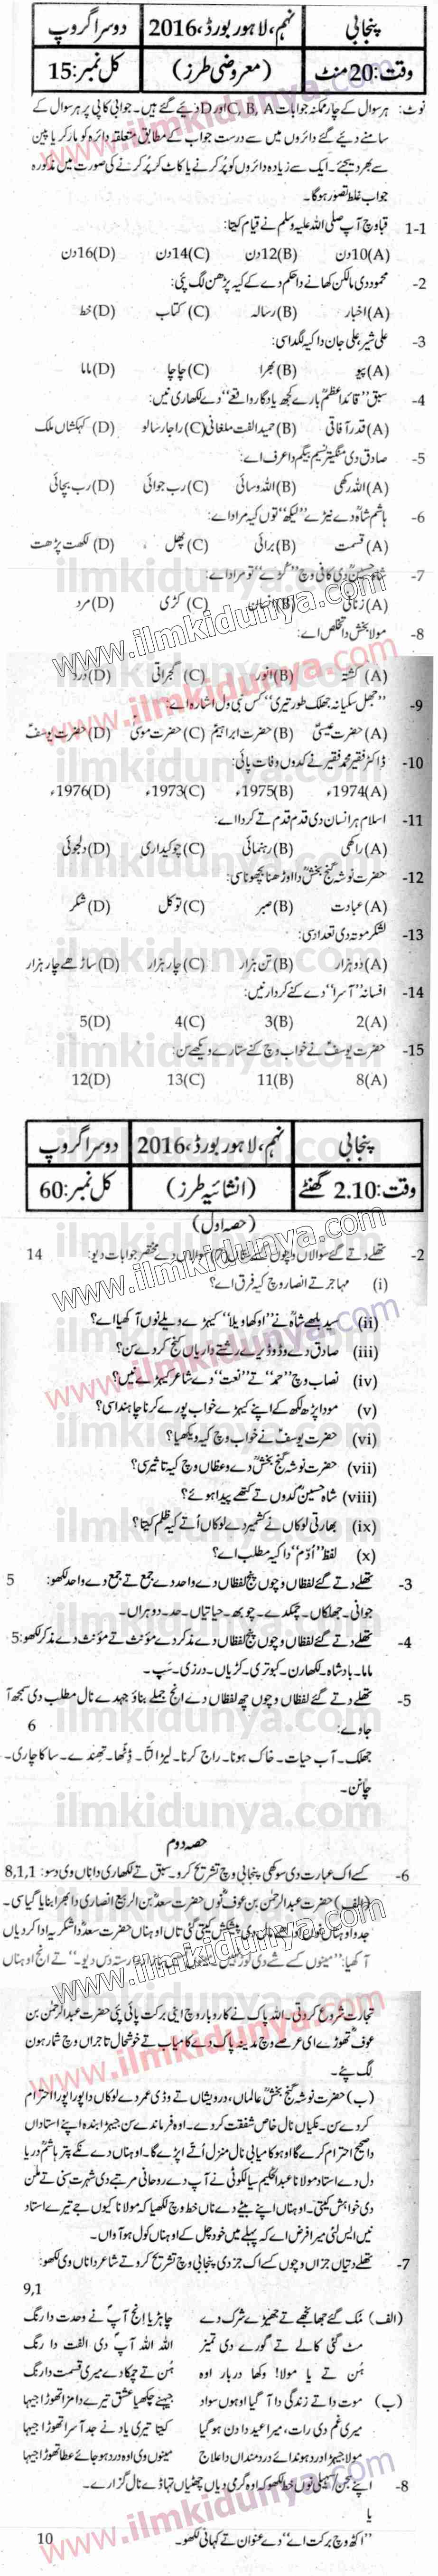 پنجابی
نہم، لاہور بورڈ، 2016
دوسرا گروپ
وقت: 20 منٹ
(معروضی طرز)
کل نمبر: 15
نوٹ: ہر سوال کے چار ممکنہ جوابات A، B، C اور D دیئے گئے ہیں۔ جوابی کاپی پر ہر سوال کے
سامنے دیئے گئے دائروں میں سے درست جواب کے مطابق متعلقہ دائرہ کو مارکر یا پین
سے بھر دیجئے۔ ایک سے زیادہ دائروں کو پُر کرنے یا کاٹ کر پُر کرنے کی صورت میں مذکورہ
جواب غلط تصور ہوگا۔
1-1 قبا وچ آپ صلی اللہ علیہ وسلم نے قیام کیتا:
(A) 10 دن (B) 12 دن (C) 14 دن (D) 16 دن
2- محمود دی مالکن کھانے دا حکم دے کے کیہ پڑھن لگ پئی:
(A) اخبار (B) رسالہ (C) کتاب (D) خط
3- علی شیر، علی جان دا کیہ لگدا سی:
(A) پیو (B) بھرا (C) چاچا (D) ماما
4- سبق "قائداعظمؒ بارے کجھ یادگار واقعے" دے لکھاری نیں:
(A) قدر آفاقی (B) حمید الفت ملغانی (C) راجا رسالو (D) کہکشاں ملک
5- صادق دی منگیتر نسیم بیگم دا عرف اے:
(A) اللہ رکھی (B) اللہ وسائی (C) رب جوائی (D) رب بچائی
6- ہاشم شاہ دے نیڑے "لیکھ" توں کیہ مراد اے:
(A) قسمت (B) برائی (C) پھل (D) لکھت پڑھت
7- شاہ حسینؒ دی کافی وچ "کڑے" تو مراد اے:
(A) زنانی (B) انسان (C) کڑی (D) مرد
8- مولا بخش دا تخلص اے:
(A) کشتہ (B) انور (C) گجراتی (D) درد
9- "جھل سکیا نہ جھلک طور تیری" کس نبی ول اشارہ اے:
(A) حضرت عیسیٰؑ (B) حضرت ابراہیمؑ (C) حضرت موسیٰؑ (D) حضرت یوسفؑ
10- ڈاکٹر فقیر محمد فقیر نے کدوں وفات پائی:
(A) 1974ء (B) 1975ء (C) 1973ء (D) 1976ء
11- اسلام ہر انسان دی قدم قدم تے کردا اے:
(A) راکھی (B) رہنمائی (C) چوکیداری (D) دلجوئی
12- حضرت نوشہ گنج بخشؒ دا اوڑھنا بچھونا سی:
(A) عبادت (B) صبر (C) توکل (D) شکر
13- لشکر موتہ دی تعداد سی:
(A) دو ہزار (B) تن ہزار (C) چار ہزار (D) ساڑھے چار ہزار
14- افسانہ "آسرا" دے کنے کردار نیں:
(A) 2 (B) 3 (C) 4 (D) 5
15- حضرت یوسفؑ نے خواب وچ کنے ستارے ویکھے سن:
(A) 8 (B) 11 (C) 13 (D) 12
پنجابی
نہم، لاہور بورڈ، 2016
دوسرا گروپ
وقت: 2.10 گھنٹے
(انشائیہ طرز)
کل نمبر: 60
(حصہ اول)
2- تھلے دتے گئے سوالاں وچوں کسے ست (7) سوالاں دے مختصر جوابات دیو: 14
(i) مہاجر تے انصار وچ کیہ فرق اے؟
(ii) سید بلھے شاہؒ نے "اوکھا ویلا" کیہڑے ویلے نوں آکھیا اے؟
(iii) صادق دے وڈ وڈیرے رشتے داریاں کنج کردے سن؟
(iv) نصاب وچ "حمد" تے "نعت" دے شاعر کیہڑے نیں؟
(v) مودا پڑھ لکھ کے اپنے کیہڑے خواب پورے کرنا چاہندا سی؟
(vi) حضرت یوسفؑ نے خواب وچ کیہ ویکھیا؟
(vii) حضرت نوشہ گنج بخشؒ دے وعظاں وچ کیہ تاثیر سی؟
(viii) شاہ حسینؒ کدوں تے کتھے پیدا ہوئے؟
(ix) بھارتی لوکاں نے کشمیر دے لوکاں اُتے کیہ ظلم کیتا؟
(x) لفظ "اُدّم" دا کیہ مطلب اے؟
3- تھلے دتے گئے لفظاں وچوں پنج لفظاں دے واحد دے جمع تے جمع دے واحد لکھو: 5
جوانی۔ جھلکاں۔ چمکدے۔ چوبھ۔ حیاتیاں۔ حد۔ دوہراں۔
4- تھلے دتے گئے لفظاں وچوں پنج لفظاں دے مذکر دے مؤنث تے مؤنث دے مذکر لکھو: 5
ماما۔ بادشاہ۔ لکھارن۔ کبوتری۔ کڑیاں۔ درزی۔ سَپ۔
5- تھلے دتے گئے لفظاں وچوں چھ لفظاں دے انج جملے بناؤ جہدے نال مطلب دی سمجھ آ
جاوے: 6
جھلک۔ آب حیات۔ خاک ہونا۔ راج کرنا۔ لیڑا لتّا۔ ڈِٹھا۔ تھندے۔ ساکا چاری۔
چانن۔
حصہ دوم
6- کسے اک عبارت دی سوکھی پنجابی وچ تشریح کرو۔ سبق تے لکھاری دا ناں وی دسو: 8,1,1
(الف) حضرت عبدالرحمٰن بن عوفؓ نوں حضرت سعدؓ بن الربیع انصاری دا بھرا بنایا گیا سی۔
تجارت شروع کردتی۔ اللہ پاک نے کاروبار وچ اینی برکت پائی پئی حضرت عبدالرحمٰن بن
عوفؓ تھوڑے ای عرصے وچ مدینہ پاک دے کامیاب تے خوشحال تاجراں وچ شمار ہون
لگ پئے۔
(ب) حضرت نوشہ گنج بخشؒ عالماں، درویشاں تے وڈی عمر دے لوکاں دا پورا پورا احترام
کردے سن۔ نکیاں نال خاص شفقت کردے۔ اوہ فرماندے سن جیہڑا بندہ اپنے استاداں
دا صحیح احترام کرے گا اوہو کامیابی نال منزل اُتے اپڑے گا۔ اوہناں دے نکے پتر ہاشم دریا
دل دے استاد مولانا عبدالحکیم سیالکوٹی نے آپ دے روحانی مرتبے دی شہرت سنی تے ملن
دی خواہش کیتی۔ اوہناں اپنے بیٹے دے ناں خط وچ لکھیا کہ مولانا کیوں جے تیرے استاد
نیں ایس لئی میرا فرض اے کہ پہلے میں خود چل کے اوہناں کول ہو آواں۔
7- تھلے دتیاں جزاں وچوں کسے اک جز دی پنجابی وچ تشریح کرو تے شاعر دا ناں وی لکھو:
9,1
(الف) مُک گئے جھانجھے تے جھیڑے شرک دے چاہڑیا اِنج آپؐ نے وحدت دا رنگ
مٹ گئی کالے تے گورے دی تمیز اللہ اللہ آپؐ دی الفت دا رنگ
ہُن تے یا مولا! وکھا دربار اوہ ہُن تے چمکا دے میری قسمت دا رنگ
(ب) موت دا تے زندگی دا آ گیا اوہوں سواد جیہنے چکھیا عشق تیرے دا مزا تھوڑا جیہا
میری غم دی رات، میرا عید دا دن ہو گیا کیتا تیری یاد نے جد آسرا تھوڑا جیہا
مولا جیہڑا درد ہوندا اے درد منداں دا علاج مینوں وی اوہ درد ہو جائے عطا تھوڑا جیہا
8- اپنے سجن/سہیلی نوں خط لکھو کہ اوہ گرمی دیاں چھٹیاں تہاڈے نال گزارے۔
یا
"اکٹھ وچ برکت اے" دے عنوان تے کہانی لکھو۔ 10
www.ilmkidunya.com
ilmkidunya.com